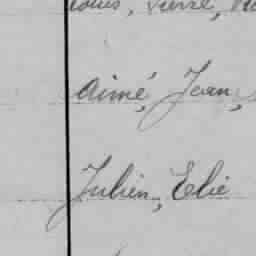 Louis, Pierre,
Aimé, Jean,
Julien, Elie